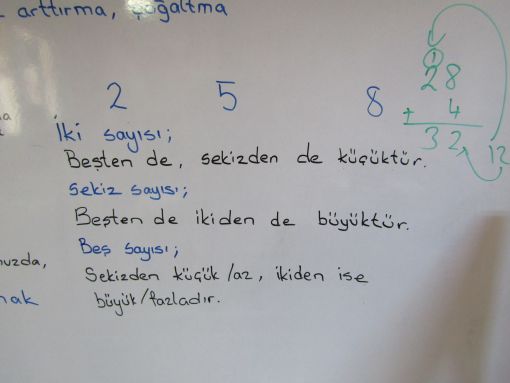 arttırma, çoğaltma
2 5 8
İki sayısı;
Beşten de, sekizden de küçüktür.
Sekiz sayısı;
Beşten de ikiden de büyüktür.
Beş sayısı;
Sekizden küçük/az, ikiden ise
büyük/fazladır.
1
28
+ 4
32
12